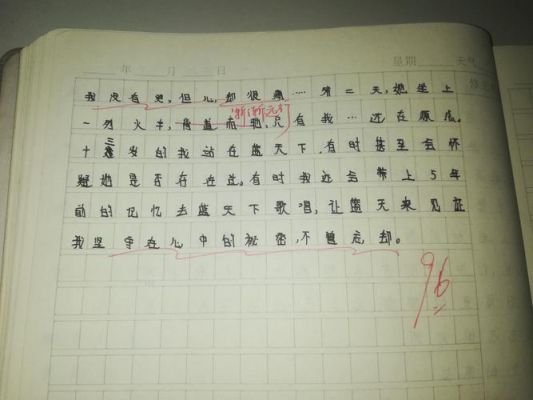 年 月 日 星期 天气
我没有哭,但心,却很痛……第二天,她坐上
一列火车,渐渐元了
背道而驰,只有我…还在原底。
十三岁的我站在蓝天下,有时甚至会怀
疑她是否存在过。有时我还会带上5年
前的记忆去蓝天下歌唱,让蓝天来见证
我坚守在心中的秘密,不曾忘却。
96